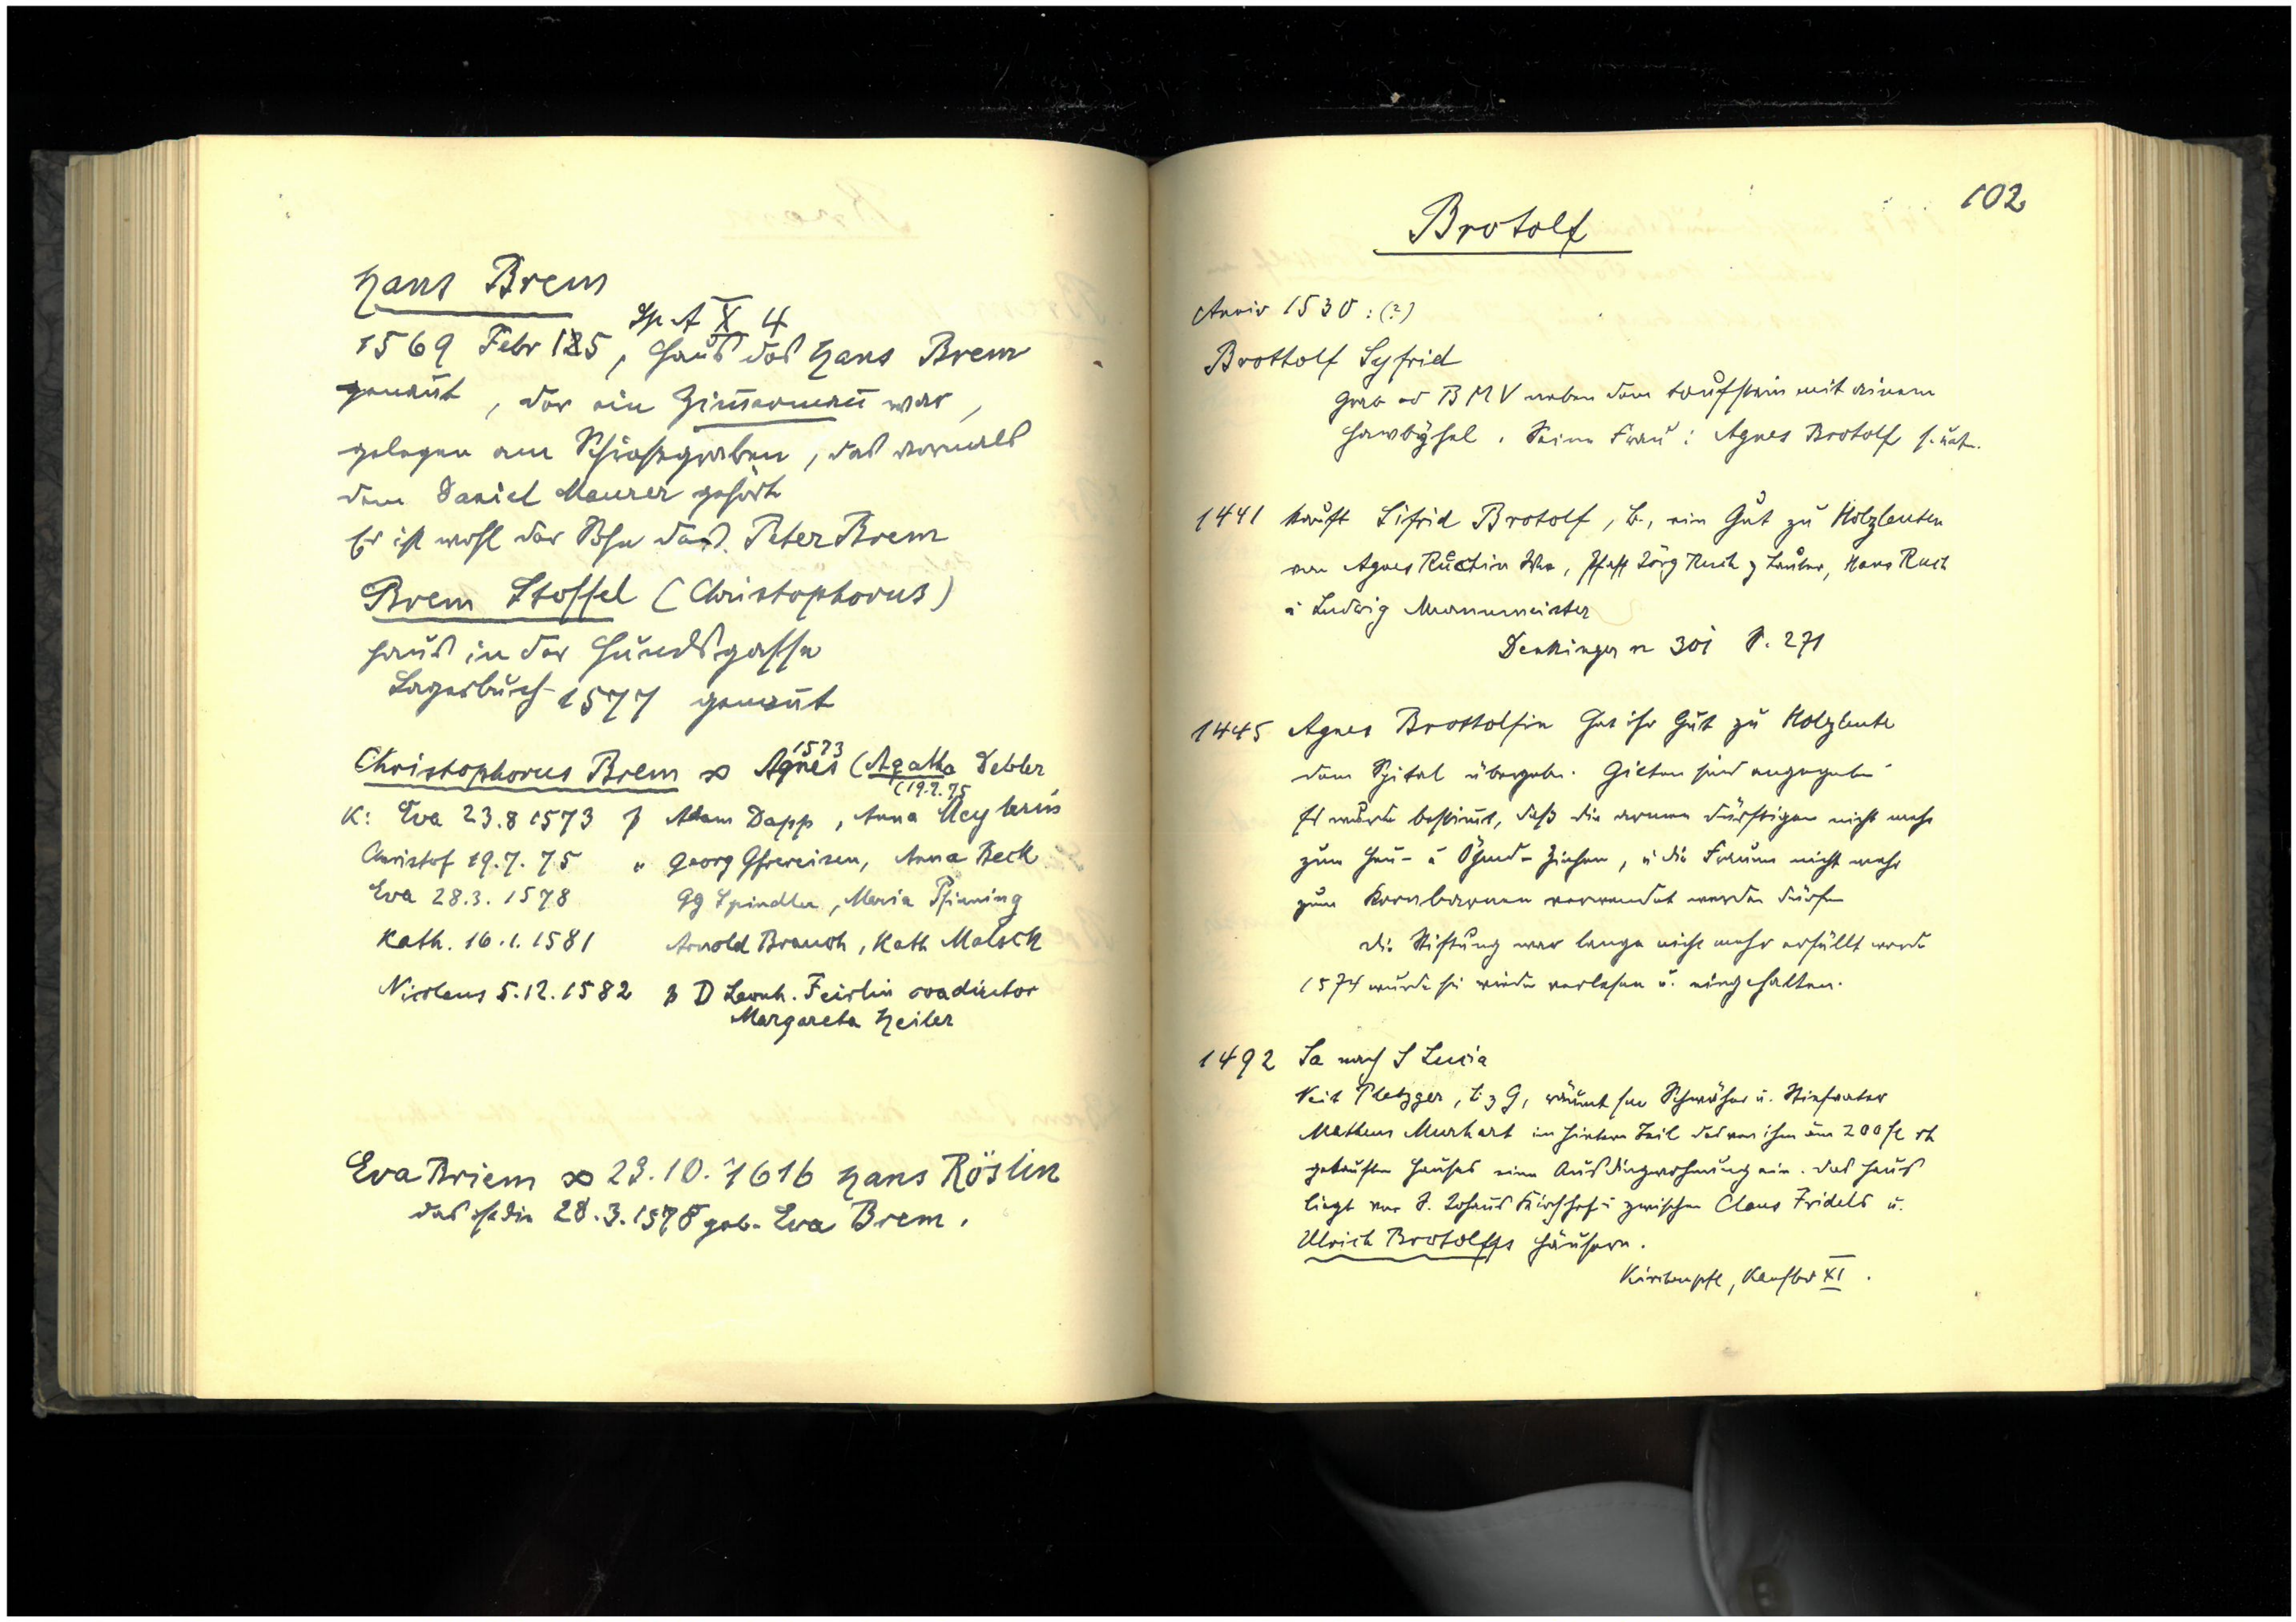 Hans Brem
Sp A X 4
1569 Febr 125, Haus des Hans Brem
genannt, der ein Zimmermann war,
gelegen am Schießgraben, das vormals
dem Daniel Maurer gehörte
Er ist wohl der Sohn des Peter Brem
Brem Stoffel (Christophorus)
Haus in der Hundsgasse
Lagerbuch 1577 genannt
1573
Christophorus Brem ∞ Agnes (Agatha Debler
(19.7.75
K: Eva 23.8 1573 Adam Dapp, Anna
Christof 19.7.75 " Georg Gfrereisen, Anna Beck
Eva 28.3.1578 Gg Spindler, Maria Pfinning
Kath. 16.1.1581 Arnold Brauch, Kath Malsch
Nicolaus 5.12.1582 D Leonh. Feirlin
Margareta Heiler
Eva Briem ∞ 23.10.1616 Hans Röslin
das ist die 28.3.1578 geb. Eva Brem.
102
Brotolf
Anniv 1530: (?)
Brottolf Syfrid
Grab ad BMV neben dem Taufstein mit einem
Seine Frau: Agnes Brotolf s. unten.
1441 kauft Sifrid Brotolf, B., ein Gut zu Holzleuten
von Agnes Ruchin Wwe, Pfaff Jörg Ruch z Lauber, Hans Ruch
u Ludwig
Denkinger n 301 S. 271
1445 Agnes Brottolfin hat ihr Gut zu Holzleute
dem Spital übergeben. Gülten sind angegeben
Es wurde bestimmt, daß die armen Dürftigen nicht mehr
zum Heu- u Öhmd-Ziehen, u die Frauen nicht mehr
zum verwendet werden dürfen
Die Stiftung war lange nicht mehr erfüllt worden
1574 wurde sie wieder verlesen u. eingehalten.
1492 Sa nach S Lucia
Veit Pletzger, B z G, räumt sm Schwäher u. Stiefvater
Matheus Murhart im hintern Teil des von ihm um 200 fl rh
gekauften Hauses eine Ausdingwohnung ein. Das Haus
liegt vor S. Johans Kirchhof zwischen Claus Fridels u.
Ulrich Brotolffs Häusern.
Kirchenpfl, Kaufbr XI.